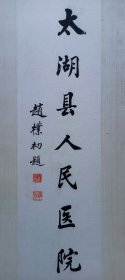 太湖县人民医院
趙樸初题